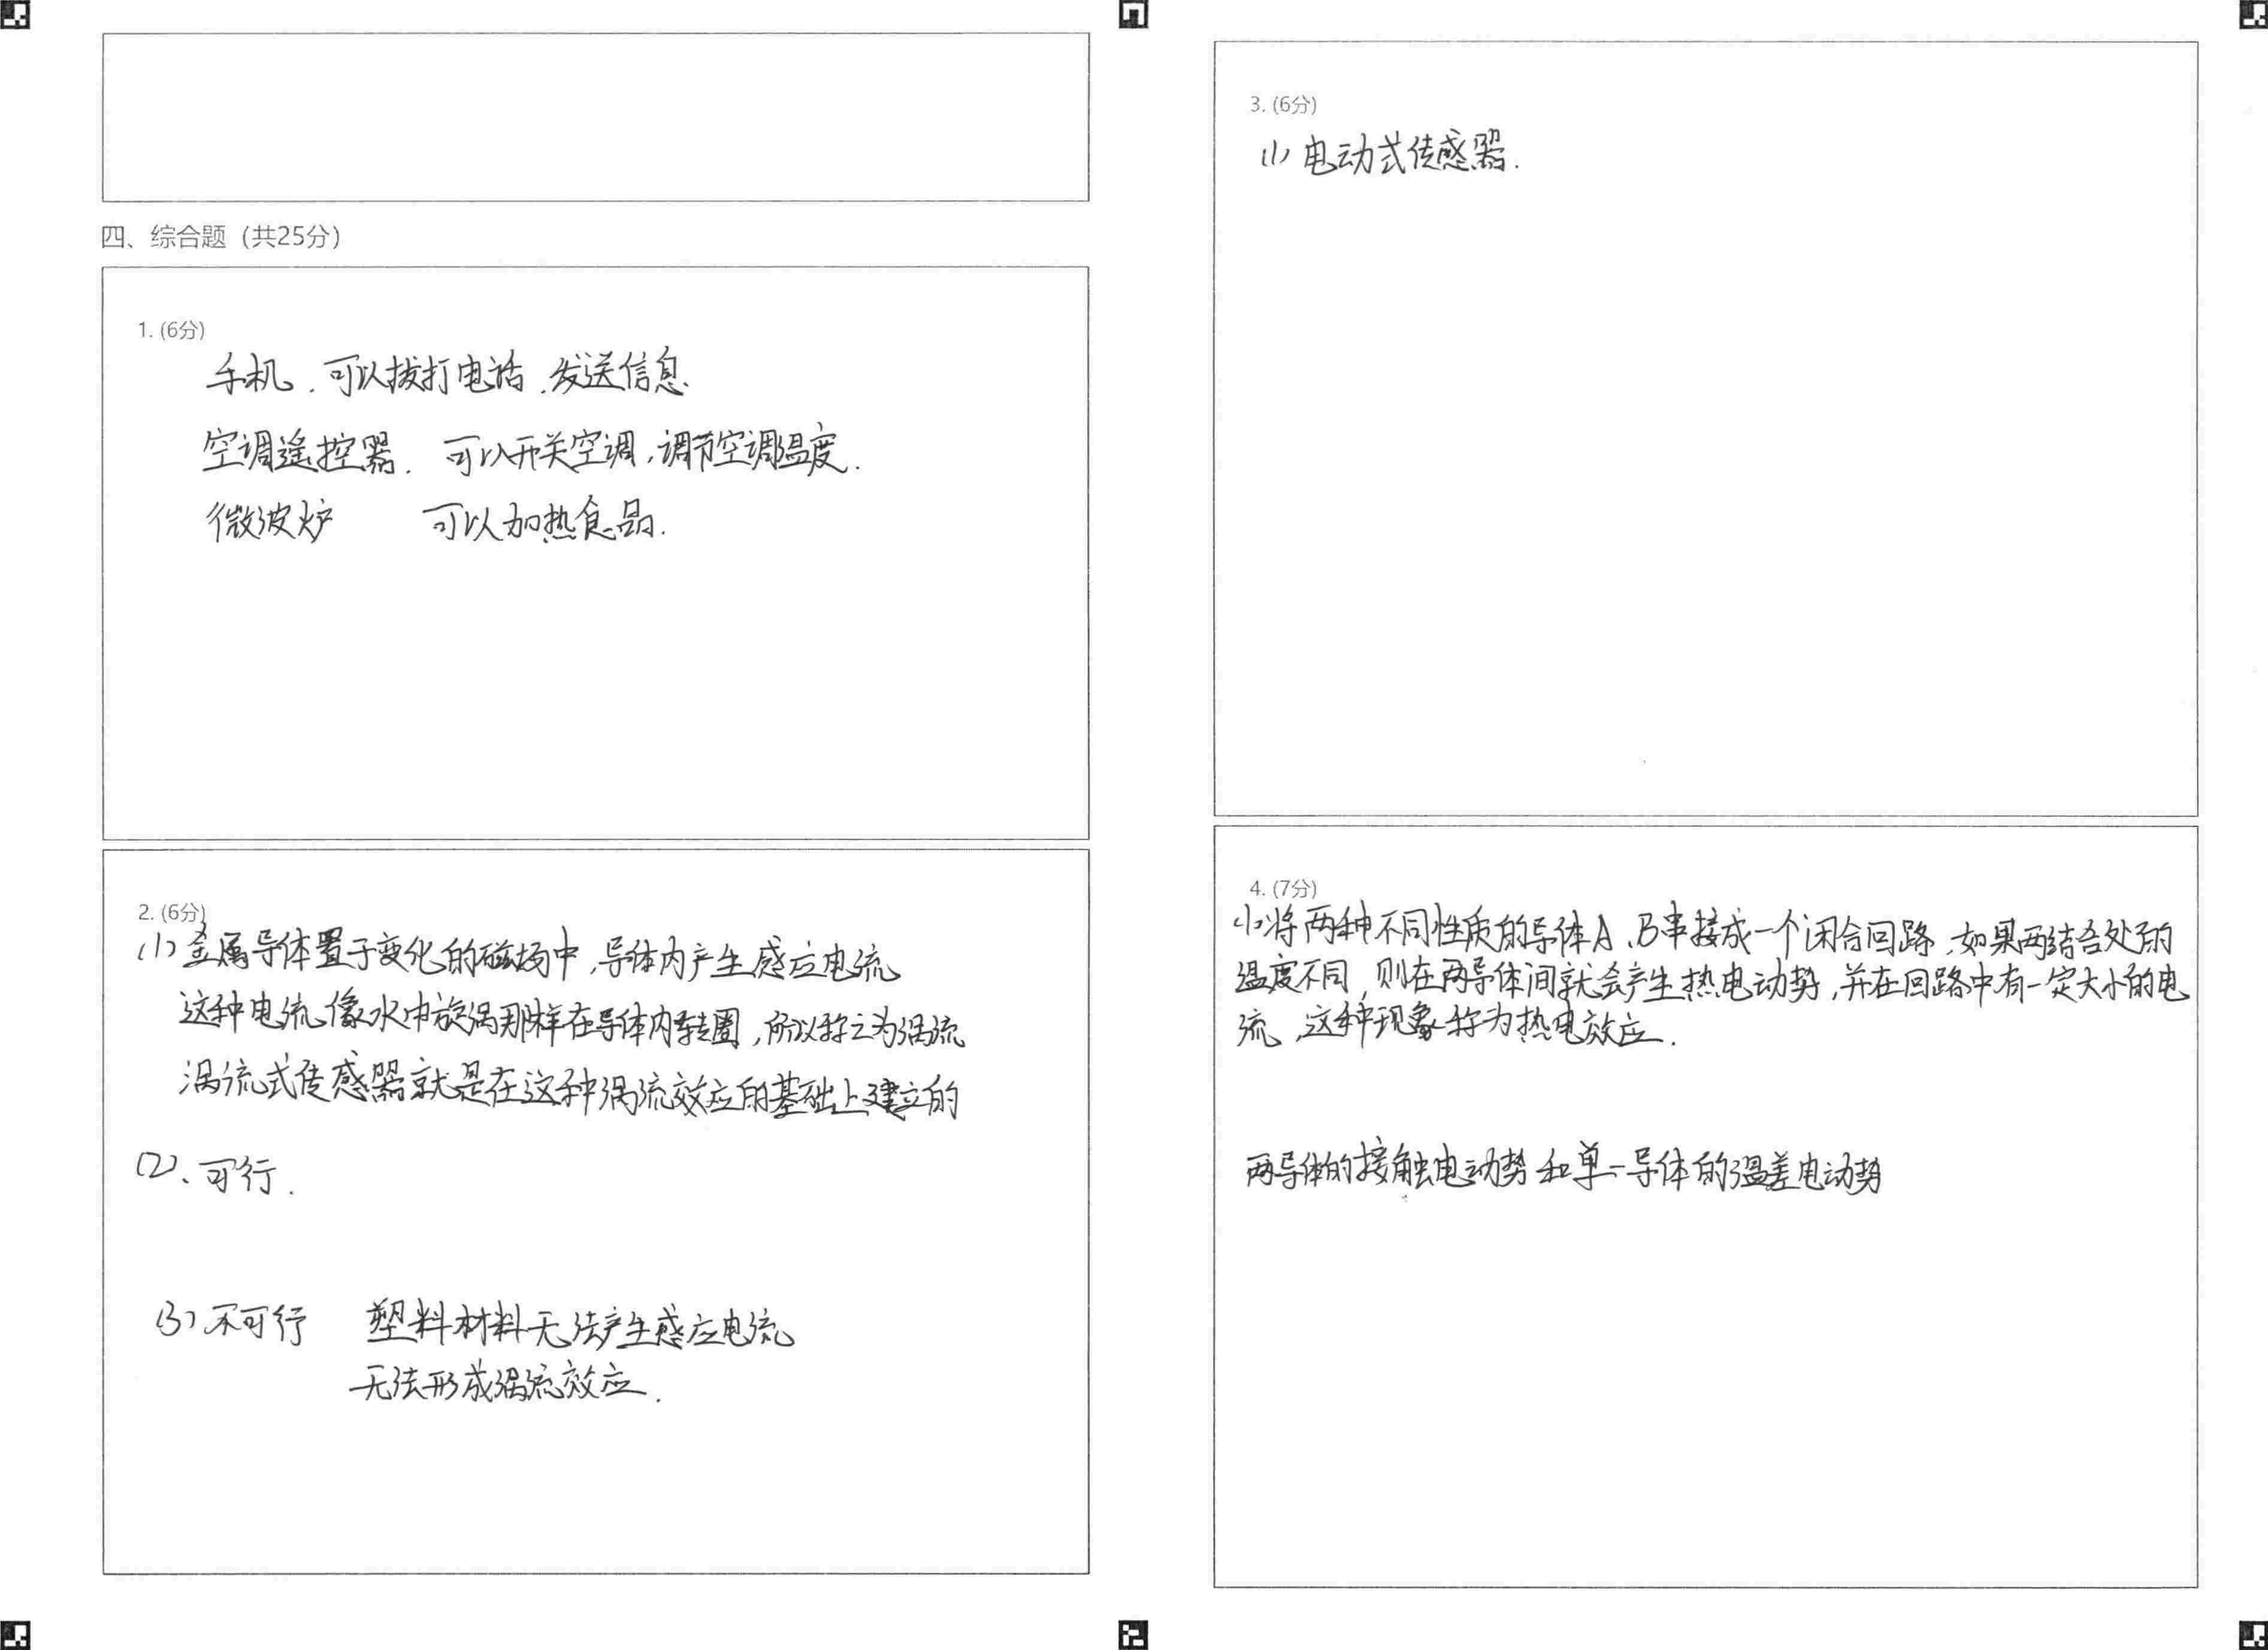 四、综合题（共25分）
1. (6分)
手机．可以拨打电话．发送信息．
空调遥控器．可以开关空调，调节空调温度．
微波炉 可以加热食品．
2. (6分)
(1) 金属导体置于变化的磁场中，导体内产生感应电流
这种电流像水中旋涡那样在导体内转圈，所以称之为涡流
涡流式传感器就是在这种涡流效应的基础上建立的
(2)、可行．
(3) 不可行 塑料材料无法产生感应电流
无法形成涡流效应．
3. (6分)
(1) 电动式传感器．
4. (7分)
(1)将两种不同性质的导体A、B串接成一个闭合回路，如果两结合处的
温度不同，则在两导体间就会产生热电动势，并在回路中有一定大小的电
流，这种现象称为热电效应．
两导体的接触电动势和单一导体的温差电动势